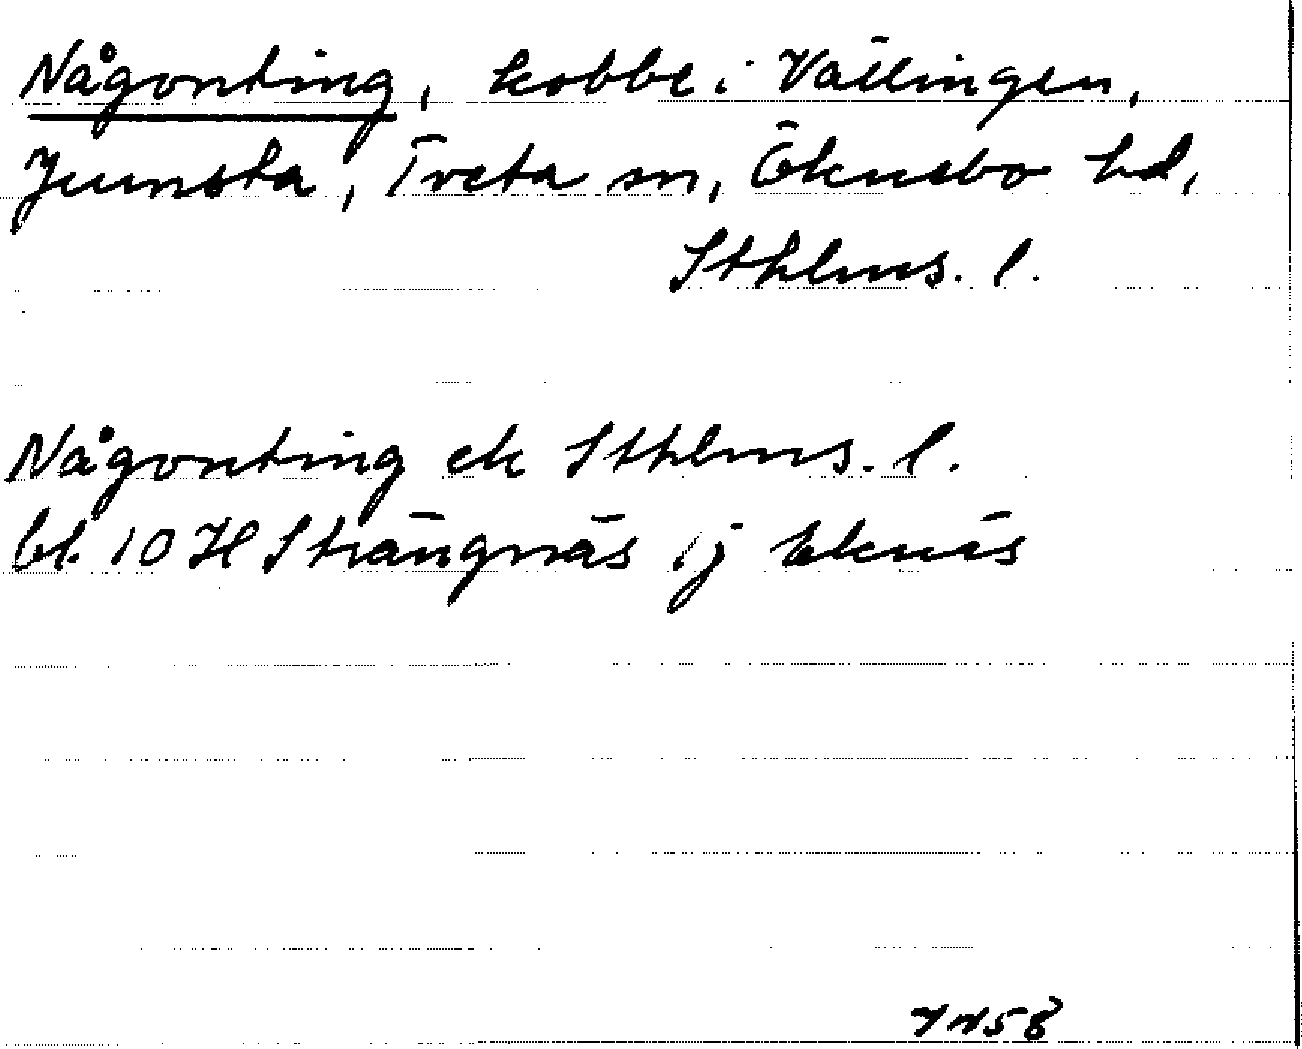 Någonting, kobbe i Vällingen,
Jumsta, Tveta sn, Öknebo hd,
Sthlms. l.
Någonting ek Sthlms. l.
bl. 10 H Strängnäs ij Eknäs